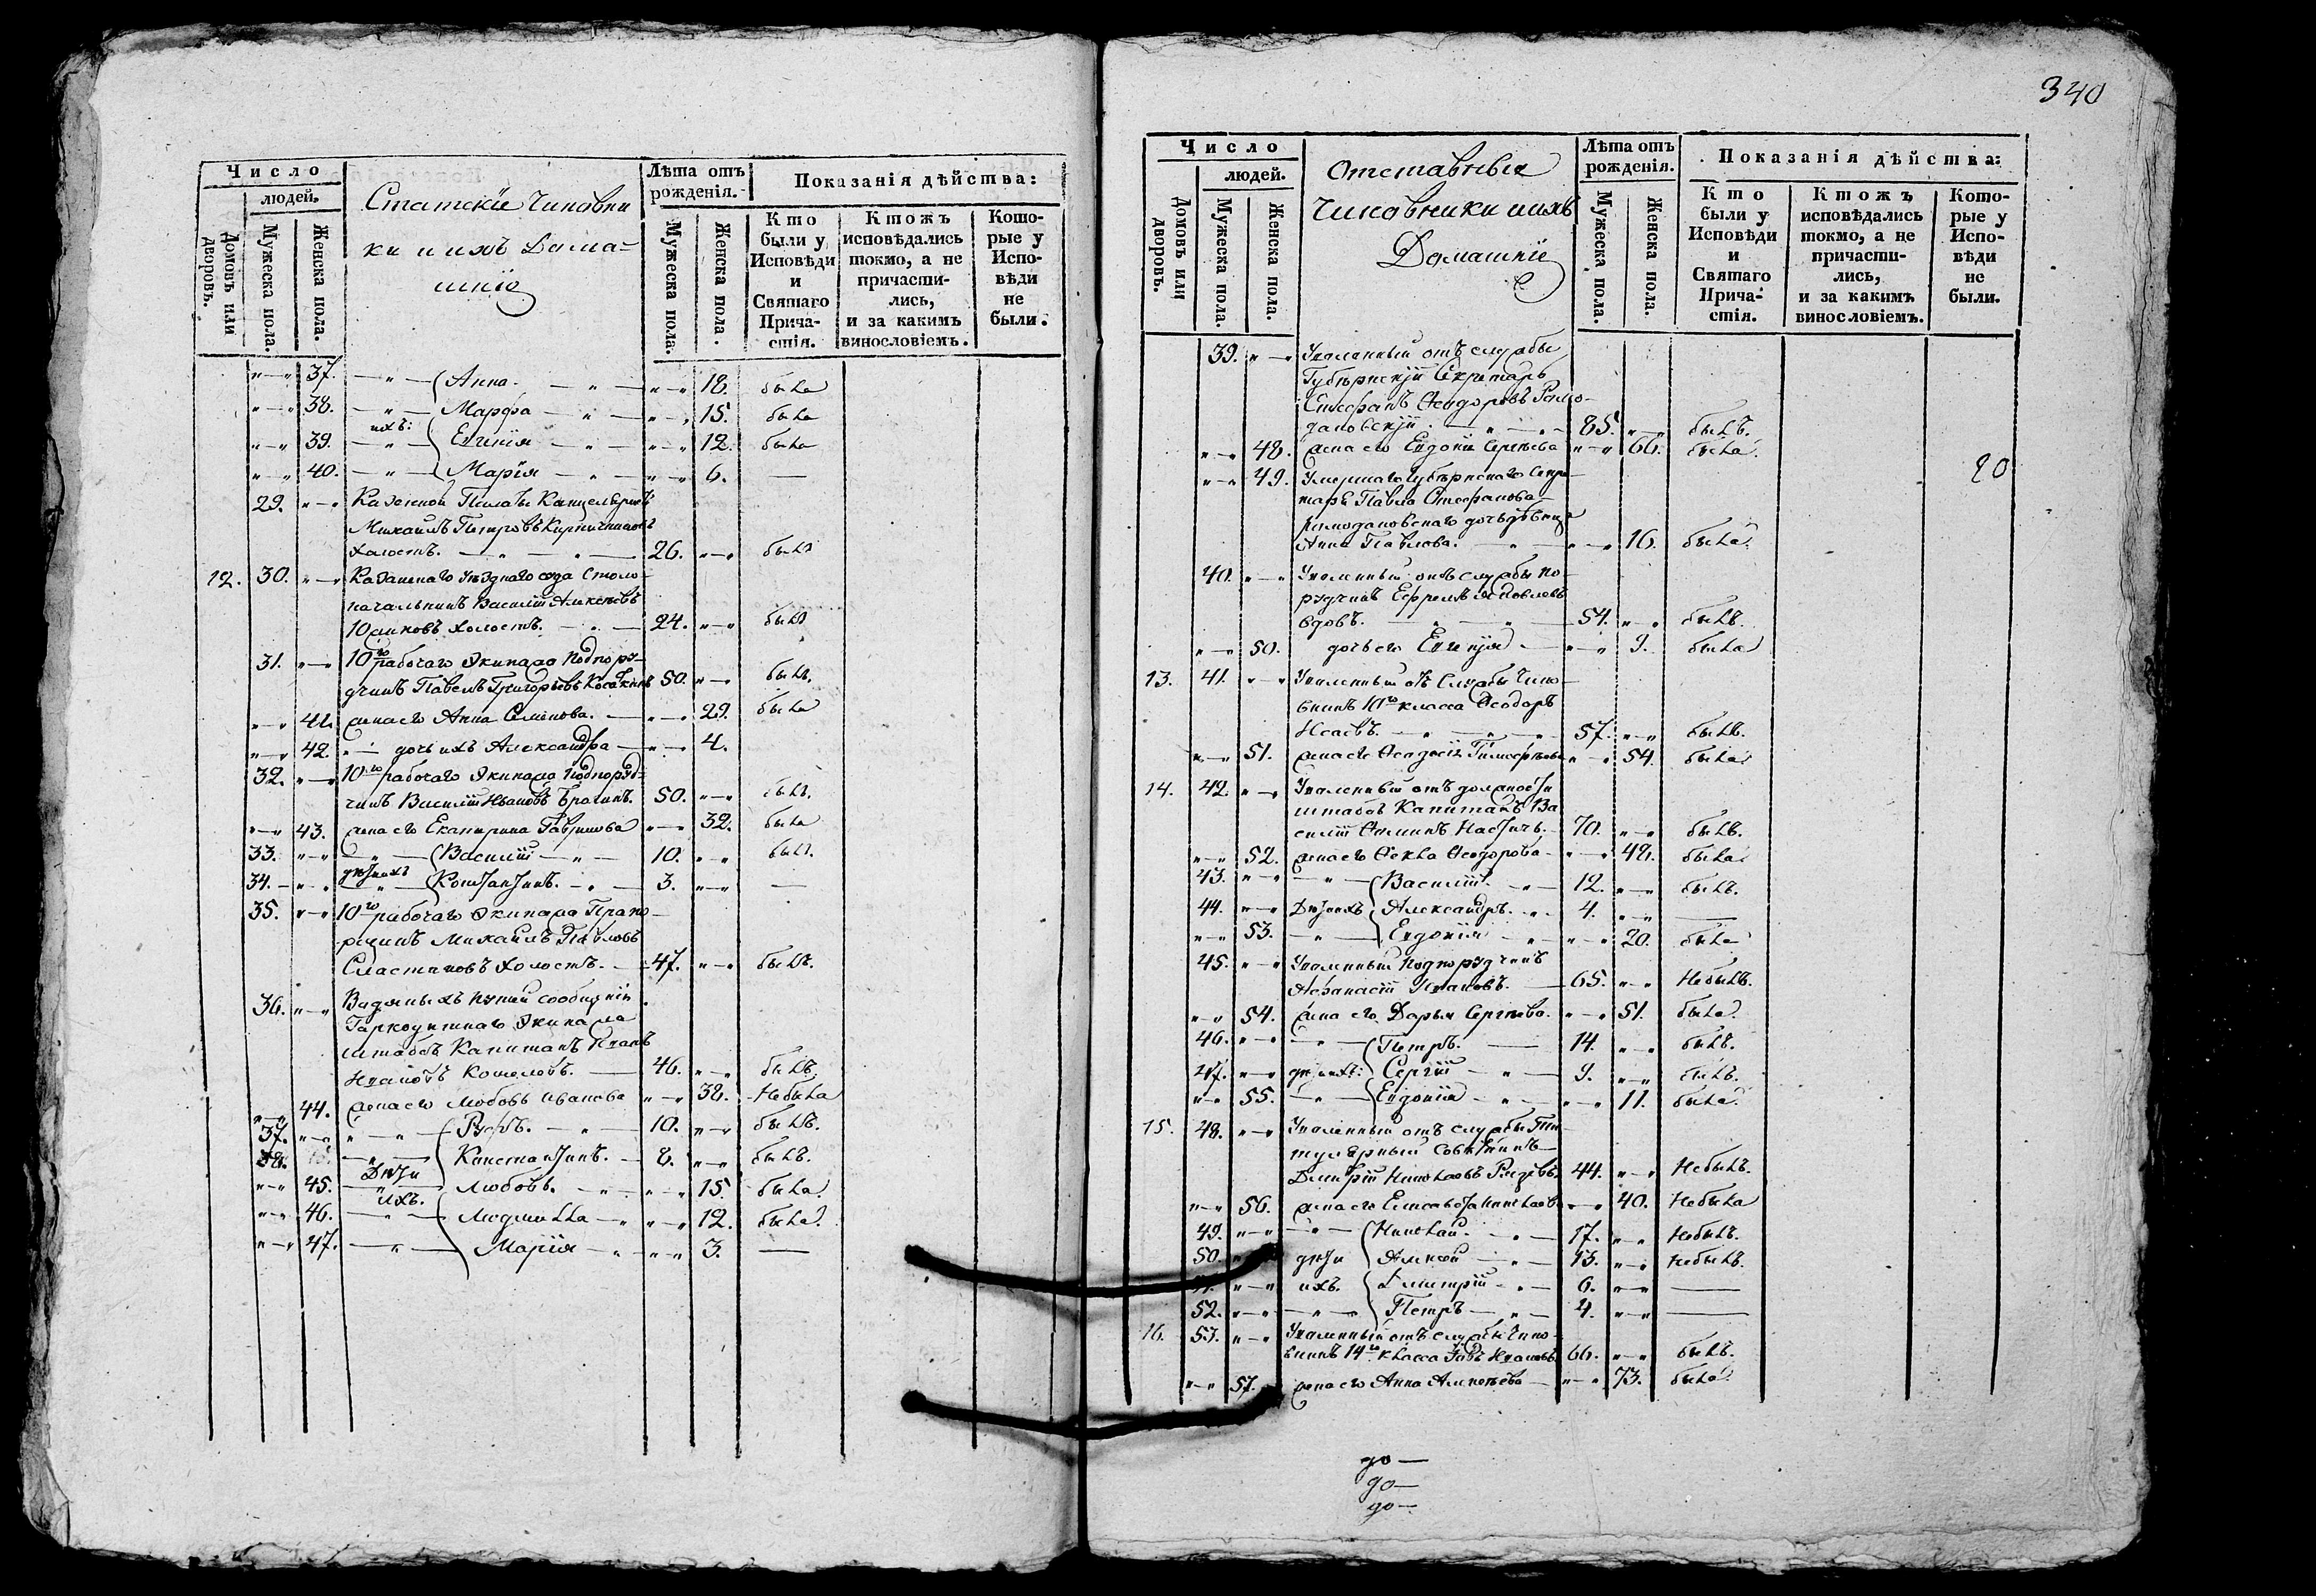 340
Число
людей.
Домовъ или дворовъ.
Мужеска пола.
Женска пола.
Статскіе Чиновни
ки и ихъ Дома=
шніе
Лѣта отъ рожденія.
Мужеска пола.
Женска пола.
Показанія дѣйства:
Кто были у Исповѣди и Святаго Причастія.
Ктожъ исповѣдались токмо, а не причастились, и за какимъ винословіемъ.
Которые у Исповѣди не были.
37. Анна 18. была
38. Марфа 15. была
ихъ:
39. Евгенія 12. была
40. Марія 6. —
29. Казенной Палаты Канцеляристъ
Михаилъ Петровъ
холостъ. 26. былъ
12. 30. Казанскаго Уѣзднаго суда Столо-
начальникъ Василій Алексѣевъ
Юшковъ холостъ. 24. былъ
31. 10го рабочаго Экипажа Подпору-
чикъ Павелъ Григорьевъ 50. былъ.
41. жена его Анна Семенова. 29. была
42. дочь ихъ Александра 4.
32. 10го рабочаго Экипажа Подпору-
чикъ Василій Ивановъ Брагинъ. 50. былъ.
43. жена его Екатерина Гаврилова 32. была
33. Василій 10. былъ.
дѣти ихъ
34. Константинъ. 3. —
35. 10го рабочаго Экипажа Прапо-
рщикъ Михаилъ Павловъ
Сластниковъ холостъ. 47. былъ.
36. Водяныхъ путей сообщенія
Экипажа
штабсъ Капитанъ Иванъ
Ивановъ 46. былъ.
44. жена его Любовь Иванова 38. Небыла
37. 10. былъ.
38. Константинъ. 8. былъ.
Дѣти
45. Любовь. 15. была.
ихъ.
46. Людмилла 12. была.
47. Марія 3. —
Число
людей.
Домовъ или дворовъ.
Мужеска пола.
Женска пола.
Отставныя
Чиновники и ихъ
Домашніе
Лѣта отъ рожденія.
Мужеска пола.
Женска пола.
Показанія дѣйства:
Кто были у Исповѣди и Святаго Причастія.
Ктожъ исповѣдались токмо, а не причастились, и за какимъ винословіемъ.
Которые у Исповѣди не были.
39. Уволенный отъ службы
Губернскій Секретарь
Стефанъ Ѳеодоровъ Ромо-
дановскій. 85. былъ.
48. жена его Евдокія Сергѣева 66. была.
20
49. Умершаго Губернскаго Секре-
таря Павла Стефанова
Ромодановскаго дочь дѣвица
Анна Павлова. 16. была.
40. Уволенный отъ службы По-
ручикъ Ефремъ Яковлевъ
вдовъ. 54. былъ.
50. дочь его Евгенія 9. была
13. 41. Уволенный отъ Службы Чино-
вникъ 10го класса Ѳеодоръ
Исаевъ. 57. былъ.
51. жена его Ѳеодосія Тимофѣева 54. была.
14. 42. Уволенный отъ должности
штабсъ Капитанъ Ва
силій 70. былъ.
52. жена его Ѳекла Ѳеодорова 48. была.
43. Василій. 12. былъ.
44. Дѣти ихъ Александръ. 4. —
53. Евдокія 20. была
45. Уволенный Подпоручикъ
Аѳанасій Ивановъ. 65. Небылъ.
54. жена его Дарья Сергѣева. 51. была.
46. Петръ. 14. былъ.
47. дѣти ихъ: Сергій 9. былъ.
55. Евдокія 11. была.
15. 48. Уволенный отъ службы Ти-
тулярный Совѣтникъ
Димитрій Николаевъ 44. Небылъ.
56. жена его Елисавета Николаева 40. Небыла
49. Николай. 17. Небылъ.
50. дѣти Алексѣй 13. Небылъ.
ихъ. Димитрій 6. —
52. Петръ 4. —
16. 53. Уволенный отъ службы Чино-
вникъ 14го класса Ивановъ. 66. былъ.
57. жена его Анна Алексѣева 73. была.
до—
до—
до—